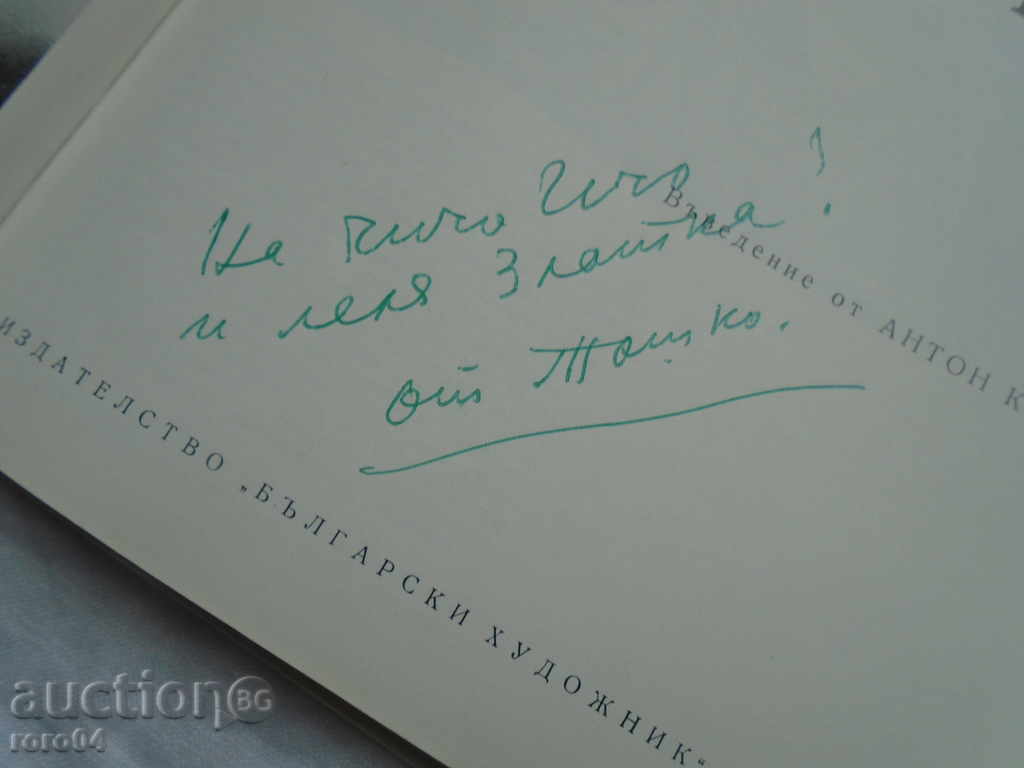 На чичо Гичо
и леля Златка!
от Тошко.
Въведение от АНТОН К
ИЗДАТЕЛСТВО „БЪЛГАРСКИ ХУДОЖНИК“
auction BG
roro04